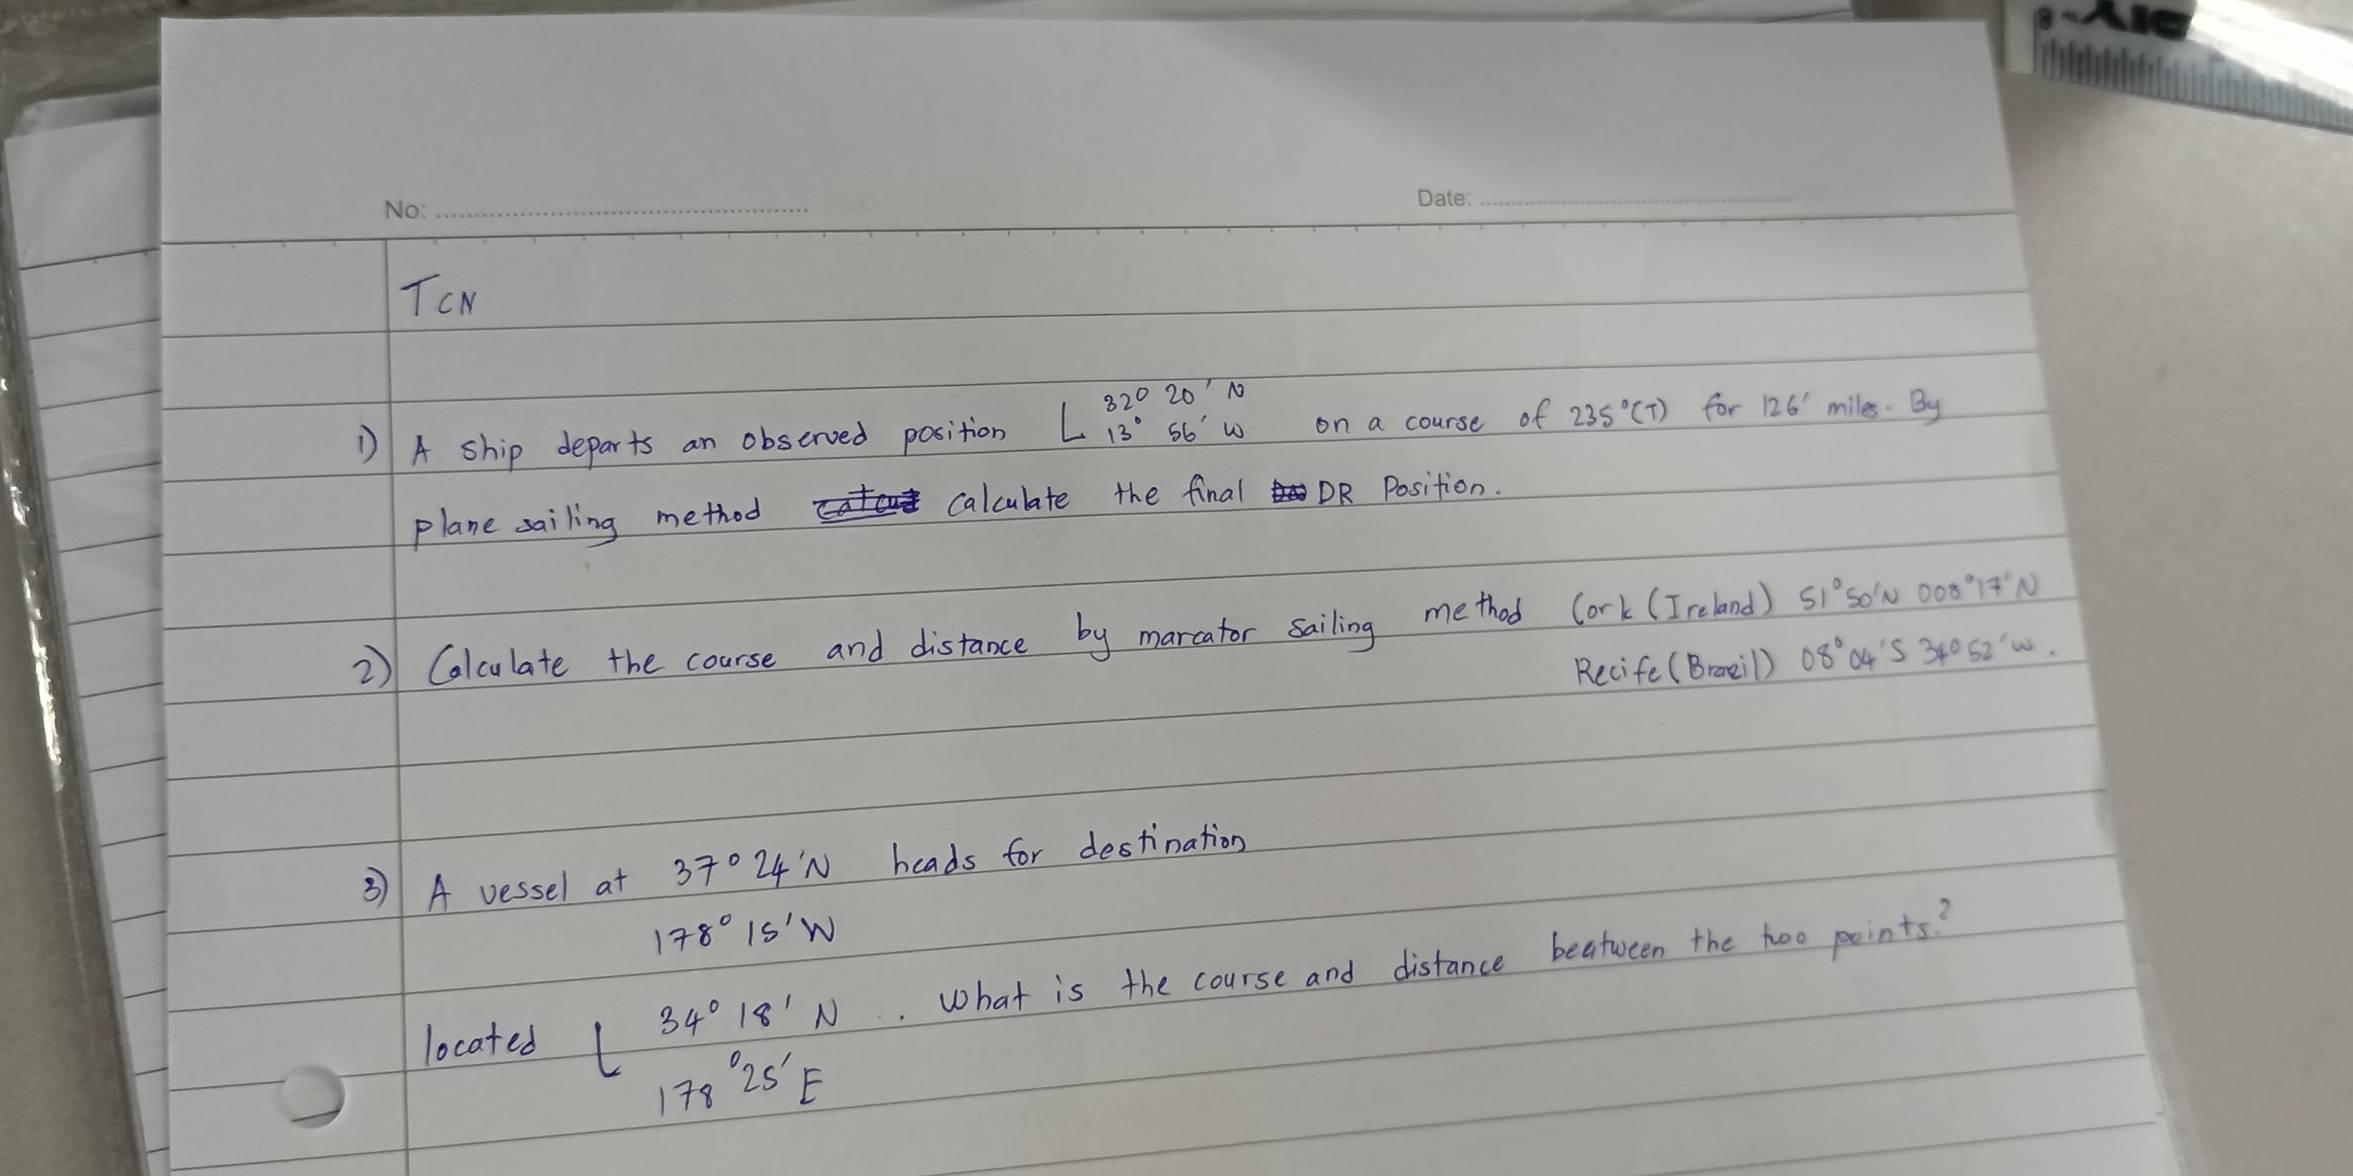 DIY-8
No:
Date:
TCN
1) A ship departs an observed position L 32° 20' N 13° 56' W on a course of 235°(T) for 126' miles. By
plane sailing method calculate the final DR Position.
2) Calculate the course and distance by marcator sailing method Cork (Ireland) 51°50'N 008°17'N
Recife (Brazil) 08°04'S 34°52'W.
3) A vessel at 37°24'N heads for destination
178°15'W
located L 34°18'N. What is the course and distance beatween the two points?
178°25'E